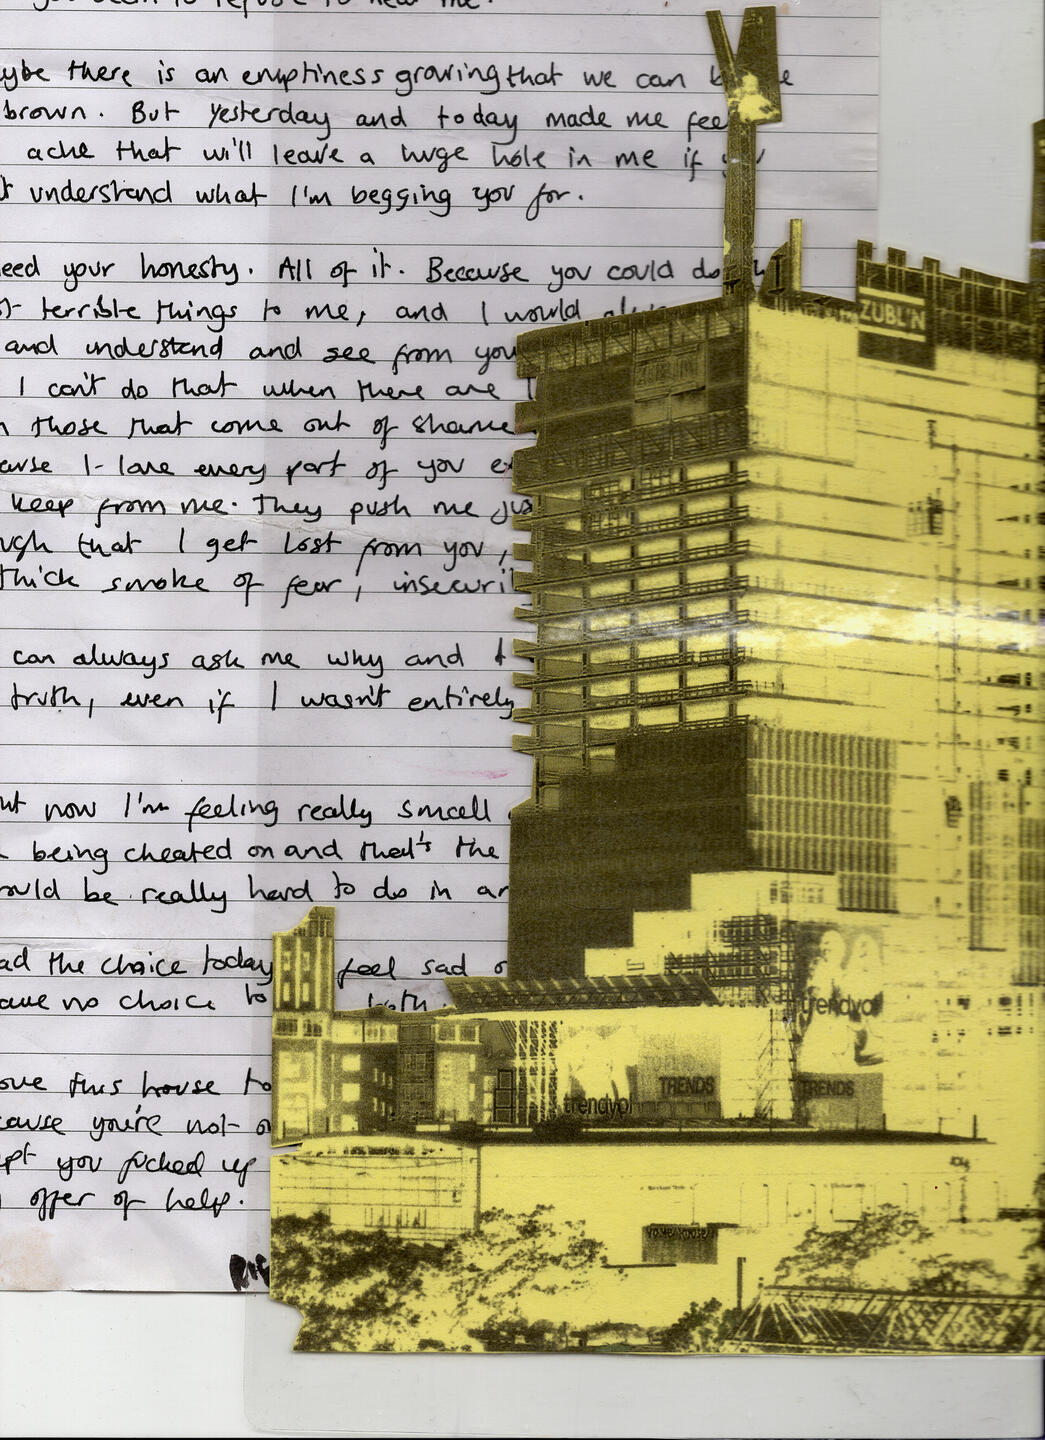 maybe there is an emptiness growing that we can
brown. But yesterday and today made me feel
ache that will leave a huge hole in me if you
understand what I'm begging you for.
need your honesty. All of it. Because you could do
terrible things to me, and I would
and understand and see from you
I can't do that when there are
those that come out of shame
I love every part of you
keep from me. They push me jus
that I get lost from you,
thick smoke of fear, insecuri
can always ask me why and
truth, even if I wasn't entirely
now I'm feeling really small
being cheated on and that's the
ould be really hard to do in
ad the choice today feel sad
ave no choice to both.
ove this house to
cause you're not
ept you fucked up
offer of help.
ZUBL'N
trendyol
TRENDS
trendyol
TRENDS